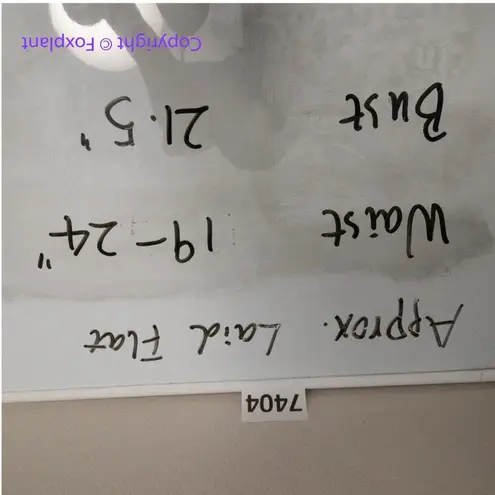 7404
Approx. Laid Flat
Waist 19-24"
Bust 21.5"
Copyright © Foxplant